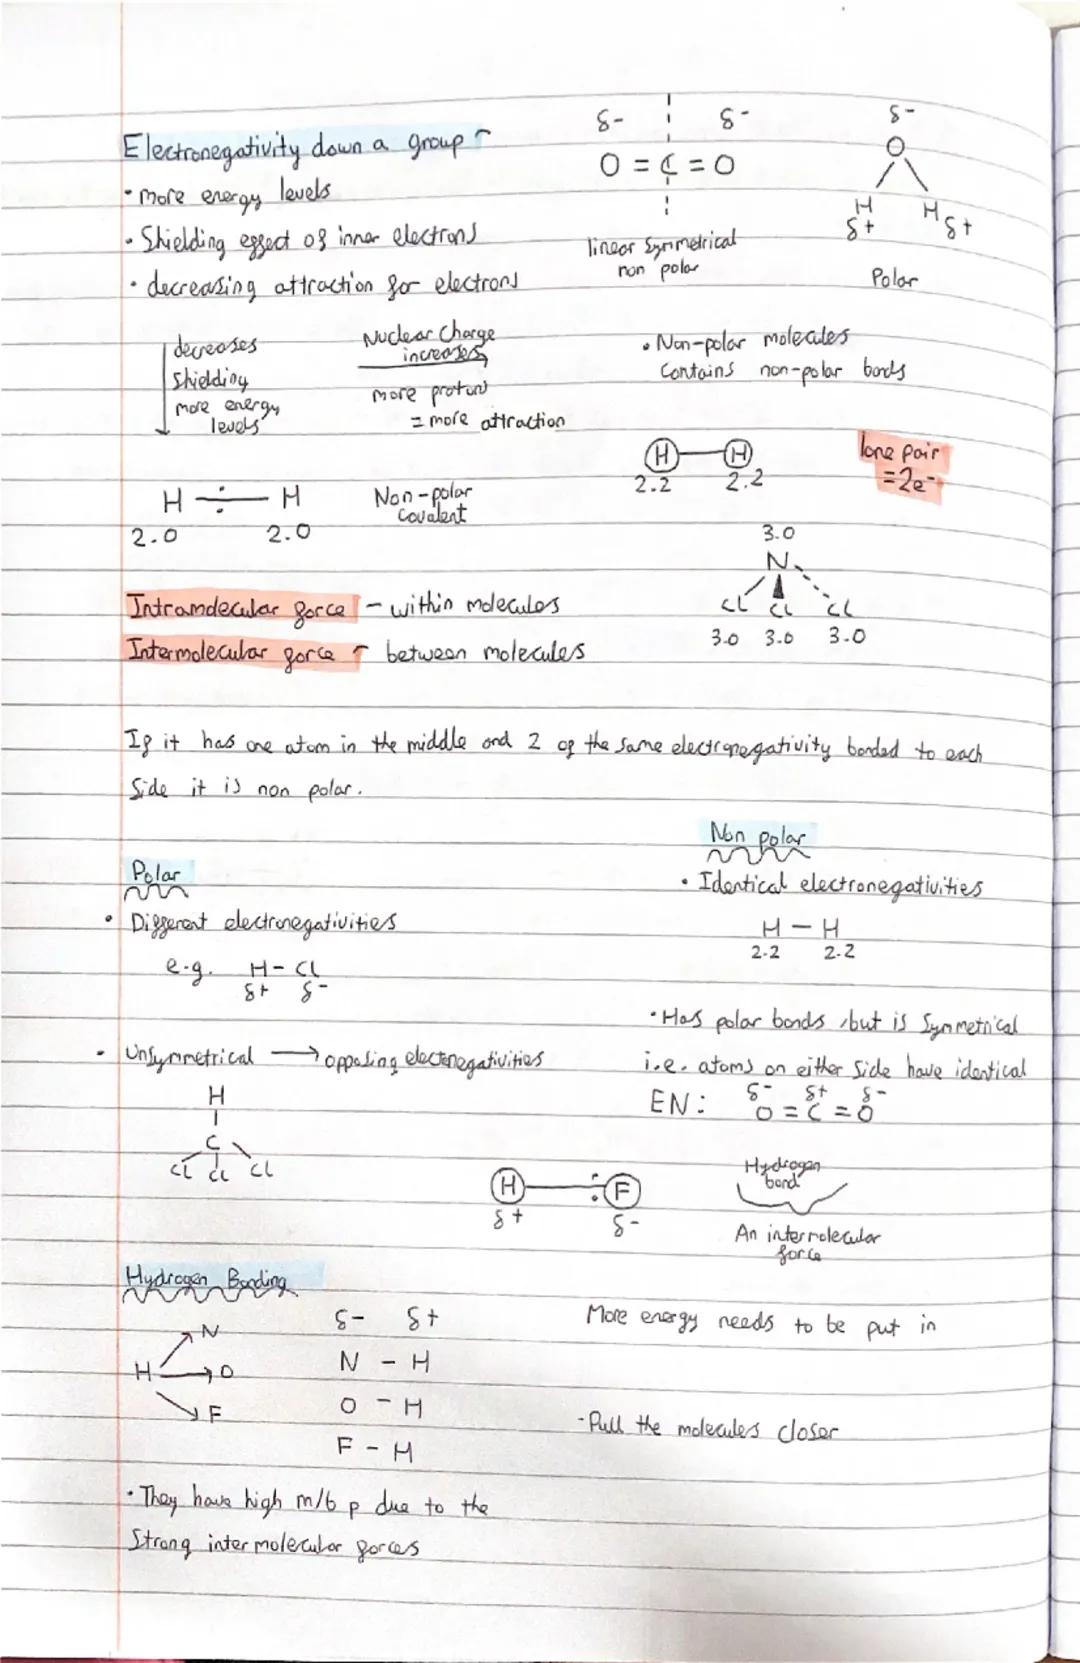 Electronegativity down a group -
• more energy levels
• Shielding effect of inner electrons
• decreasing attraction for electrons
decreases
Shielding
more energy
levels
Nuclear Charge
increases
more protons
= more attraction
H ÷ H
2.0 2.0
Non-polar
Covalent
δ- δ-
O = C = O
linear symmetrical
non polar
δ-
O
H H
δ+ δ+
Polar
• Non-polar molecules
Contains non-polar bonds
H — H
2.2 2.2
lone pair
= 2e-
3.0
N
Cl Cl Cl
3.0 3.0 3.0
Intramolecular force - within molecules
Intermolecular force - between molecules
If it has one atom in the middle and 2 of the same electronegativity bonded to each
Side it is non polar.
Polar
• Different electronegativities
e.g. H - Cl
δ+ δ-
• Unsymmetrical → opposing electenegativities
H
C
Cl Cl Cl
Non polar
• Identical electronegativities
H - H
2.2 2.2
• Has polar bonds, but is Symmetrical
i.e. atoms on either side have identical
EN: δ- δ+ δ-
O = C = O
H — : F
δ+ δ-
Hydrogen
bond
An intermolecular
force
Hydrogen Bonding
H → N
O
F
δ- δ+
N - H
O - H
F - H
More energy needs to be put in
- Pull the molecules closer
• They have high m/b p due to the
Strong intermolecular forces